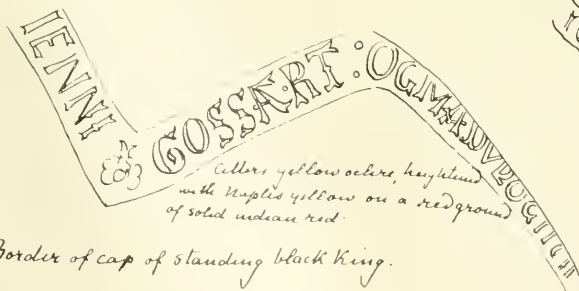 IENNI
GOSSART:OGM
Letters yellow ochre, heightened
with Naples yellow on a red ground
of solid indian red.
Border of cap of standing black King.